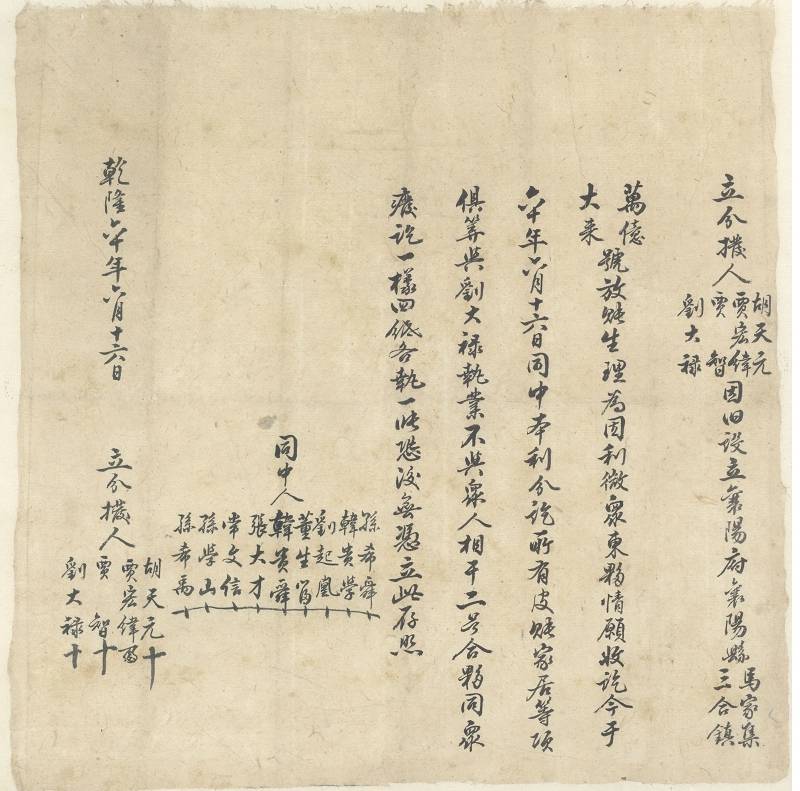 立分撥人胡天元賈宏偉賈智劉大祿因旧設立襄陽府襄陽縣馬家集三合鎮
萬億大来號放賬生理為因利微眾東夥情願收訖今于
六十年六月十六日同中本利分訖所有皮賬家居等項
俱筭與劉大祿執業不與眾人相干二号合夥同眾
廢訖一樣四紙各執一張恐後無憑立此存照
同中人
孫希舜
韓貴學
劉起凰
董生
韓貴舜
張大才
常文信
孫學山
孫希禹
乾隆六十年六月十六日
立分撥人
胡天元十
賈宏偉
賈智十
劉大祿十